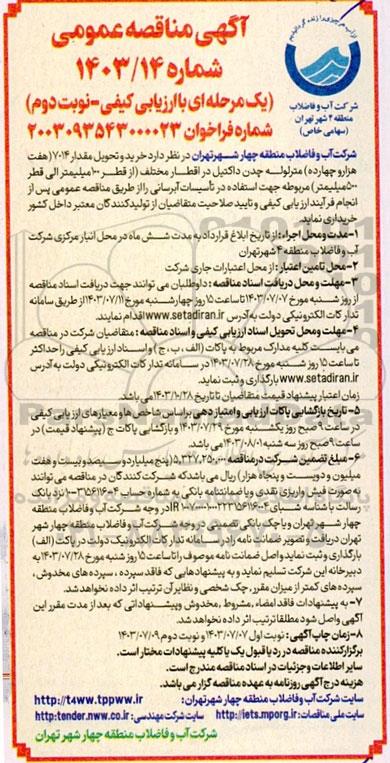 آگهی مناقصه عمومی
شماره ۱۴۰۳/۱۴
(یک مرحله‌ای با ارزیابی کیفی-نوبت دوم)
شماره فراخوان ۲۰۰۳۰۹۳۵۴۳۰۰۰۰۲۳
شرکت آب و فاضلاب
منطقه ۴ شهر تهران
(سهامی خاص)
شرکت آب و فاضلاب منطقه چهار شهر تهران در نظر دارد خرید و تحویل مقدار ۷۰۱۴ (هفت
هزار و چهارده) متر لوله چدن داکتیل در اقطار مختلف (از قطر ۱۰۰ میلیمتر الی قطر
۵۰۰ میلیمتر) مربوطه جهت استفاده در تأسیسات آبرسانی را از طریق مناقصه عمومی پس از
انجام فرآیند ارزیابی کیفی و تایید صلاحیت متقاضیان از تولیدکنندگان معتبر داخل کشور
خریداری نماید.
۱-مدت و محل اجراء: از تاریخ ابلاغ قرارداد به مدت شش ماه در محل انبار مرکزی شرکت
آب و فاضلاب منطقه ۴ شهر تهران
۲-محل تامین اعتبار: از محل اعتبارات جاری شرکت
۳-مهلت و محل دریافت اسناد مناقصه: داوطلبان می توانند جهت دریافت اسناد مناقصه
از روز شنبه مورخ ۱۴۰۳/۰۷/۰۷ تا ساعت ۱۵ روز چهارشنبه مورخ ۱۴۰۳/۰۷/۱۱ از طریق سامانه
تدارکات الکترونیکی دولت به آدرس www.setadiran.ir اقدام نمایند.
۴-مهلت و محل تحویل اسناد ارزیابی کیفی و اسناد مناقصه: متقاضیان شرکت در مناقصه
می بایست کلیه مدارک مربوط به پاکات (الف، ب، ج) و اسناد ارزیابی کیفی را حداکثر
تا ساعت ۱۵ روز شنبه مورخ ۱۴۰۳/۰۷/۲۸ در سامانه تدارکات الکترونیکی دولت به آدرس
www.setadiran.ir بارگذاری و ثبت نماید.
زمان اعتبار پیشنهاد قیمت متقاضیان تا تاریخ ۱۴۰۳/۱۰/۲۸ می باشد.
۵-تاریخ بازگشایی پاکات ارزیابی و امتیاز دهی براساس شاخص ها و معیارهای ارزیابی کیفی
در ساعت ۹ صبح روز یکشنبه مورخ ۱۴۰۳/۰۷/۲۹ و بازگشایی پاکات ج (پیشنهاد قیمت) در
ساعت ۹ صبح روز سه شنبه ۱۴۰۳/۰۸/۰۱ می باشد.
۶-مبلغ تضمین شرکت در مناقصه ۵,۳۲۷,۲۵۰,۰۰۰ (پنج میلیارد و سیصد و بیست و هفت
میلیون و دویست و پنجاه هزار) ریال می باشد که شرکت کنندگان در مناقصه می توانند
به صورت فیش واریزی نقدی و یا ضمانتنامه بانکی به شماره حساب نزد بانک
رسالت با شناسه شبای در وجه شرکت آب و فاضلاب منطقه
چهار شهر تهران و یا چک بانکی تضمینی در وجه شرکت آب و فاضلاب منطقه چهار شهر
تهران دریافت و تصویر ضمانت نامه را در سامانه تدارکات الکترونیک دولت در پاکت (الف)
بارگذاری و ثبت نماید و اصل ضمانت نامه موصوف را تا ساعت ۱۵ روز شنبه مورخ ۱۴۰۳/۰۷/۲۸ به
دبیرخانه این شرکت تسلیم نماید و به پیشنهادهایی که فاقد سپرده، سپرده های مخدوش،
سپرده های کمتر از میزان مقرر، چک شخصی و نظایر آن ترتیب اثر داده نخواهد شد.
۷-به پیشنهادات فاقد امضاء، مشروط، مخدوش و پیشنهاداتی که بعد از مدت مقرر این
آگهی واصل شود مطلقا ترتیب اثر داده نخواهد شد.
۸-زمان چاپ آگهی: نوبت اول ۱۴۰۳/۰۷/۰۷ و نوبت دوم ۱۴۰۳/۰۷/۰۹
برگزارکننده مناقصه در رد یا قبول یک یا کلیه پیشنهادات مختار است.
سایر اطلاعات و جزئیات در اسناد مناقصه مندرج است.
هزینه درج آگهی روزنامه به عهده مناقصه گزار می باشد.
سایت شرکت آب و فاضلاب منطقه چهار شهر تهران: http://t4ww.tppww.ir
سایت ملی مناقصات: http://iets.mporg.ir سایت شرکت مهندسی: http:tender.nww.co.ir
شرکت آب و فاضلاب منطقه چهار شهر تهران